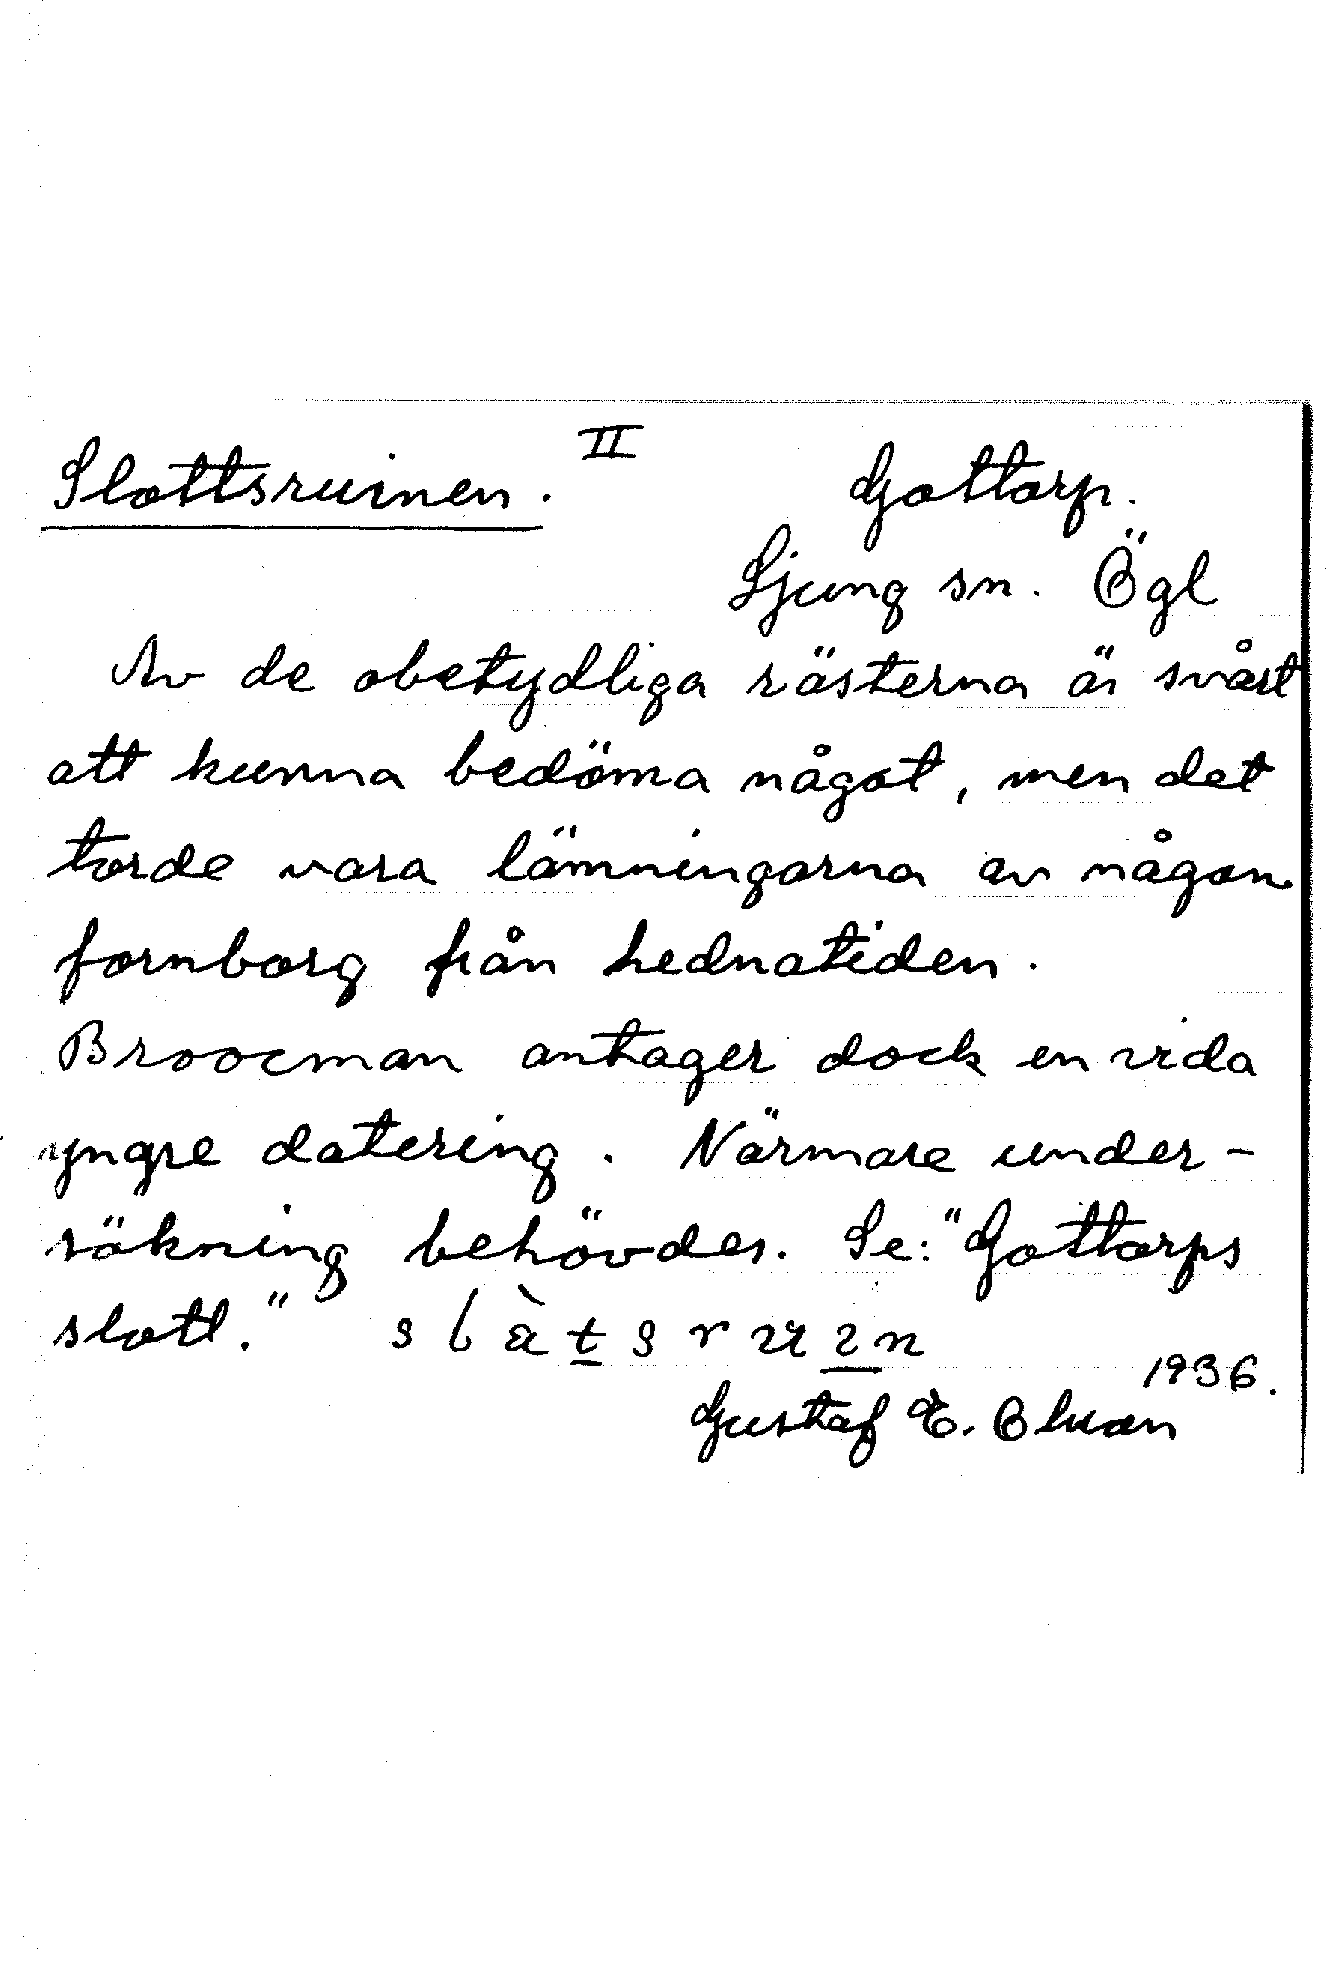 II
Slottsruinen. Gottorp.
Ljung sn. Ögl
Av de obetydliga rästerna är svårt
att kunna bedöma något, men det
torde vara lämningarna av någon
fornborg från hednatiden.
Broocman antager dock en vida
yngre datering. Närmare under-
sökning behövdes. Se: "Gottorps
slott."
1936.
Gustaf E.